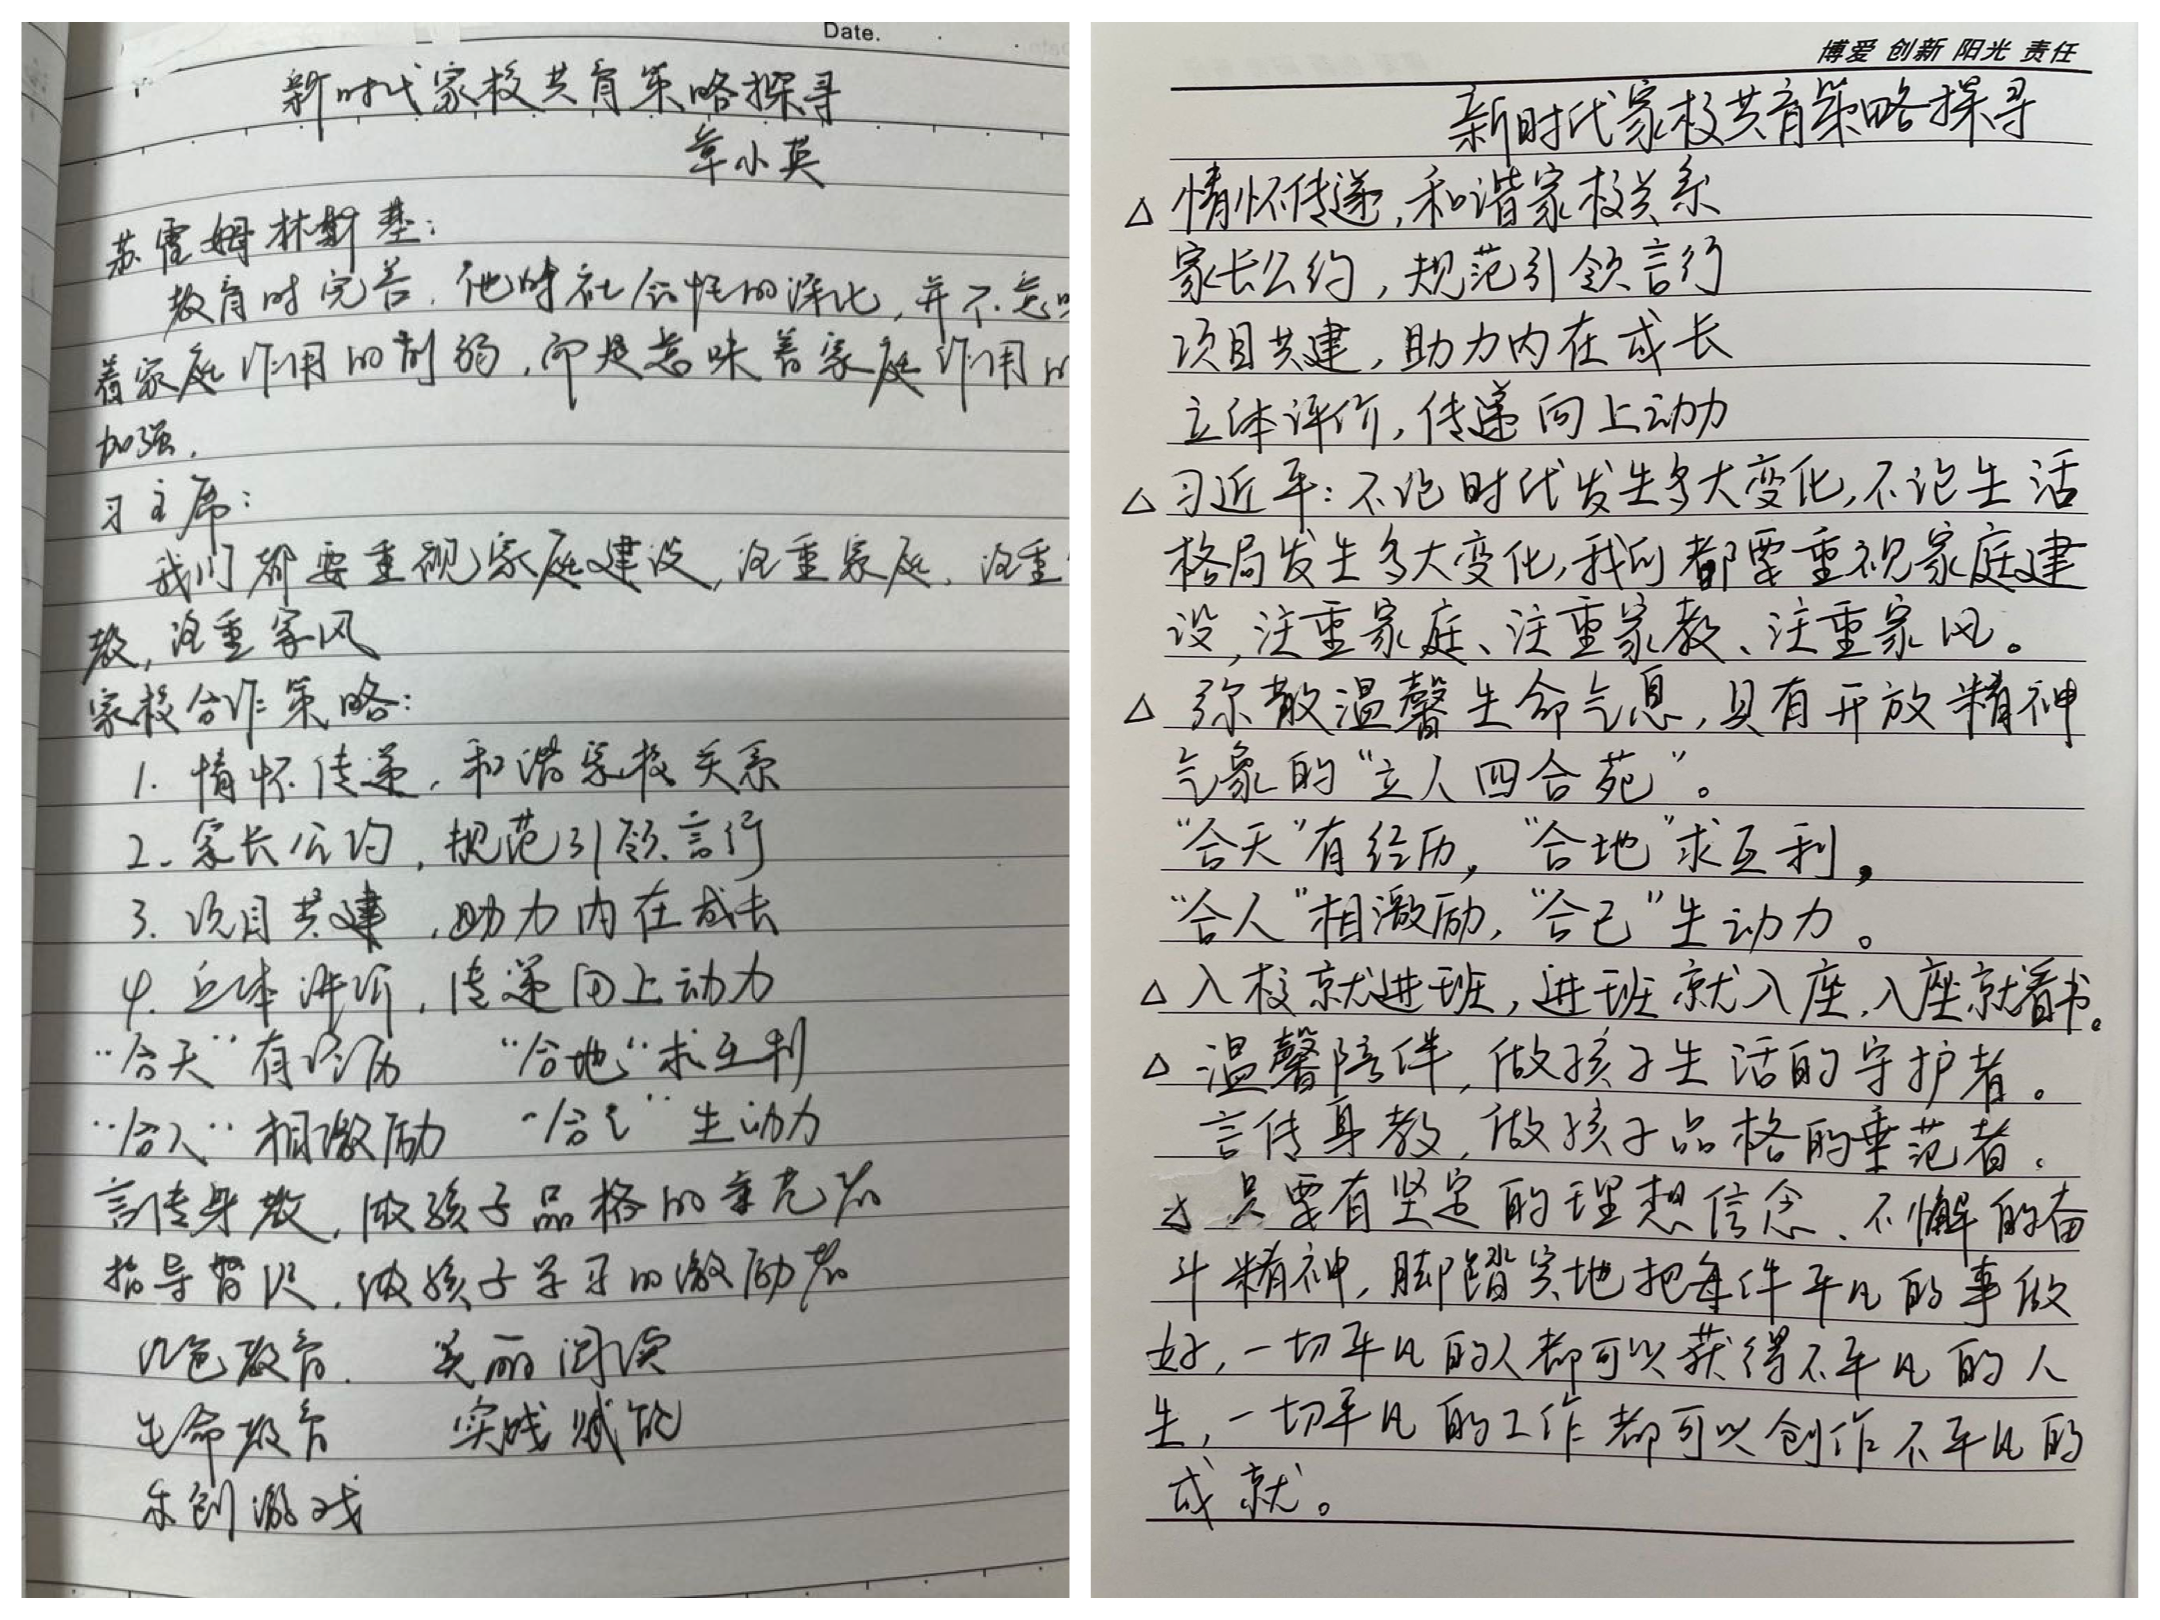 Date.
新时代家校共育策略探寻
章小英
苏霍姆林斯基:
教育时完善,他时社会性的深化,并不意味
着家庭作用的削弱,而是意味着家庭作用的
加强.
习主席:
我们都要重视家庭建设,注重家庭、注重
教,注重家风
家校合作策略:
1. 情怀传递,和谐家校关系
2. 家长公约,规范引领言行
3. 项目共建,助力内在成长
4. 立体评价,传递向上动力
“合天”有经历 “合地”求互利
“合人”相激励 “合己”生动力
言传身教,做孩子品格的垂范者
指导督促,做孩子学习的激励者
红色教育. 美丽阅读
生命教育 实践赋能
乐创游戏
博爱 创新 阳光 责任
新时代家校共育策略探寻
△ 情怀传递,和谐家校关系
家长公约,规范引领言行
项目共建,助力内在成长
立体评价,传递向上动力
△ 习近平:不论时代发生多大变化,不论生活
格局发生多大变化,我们都要重视家庭建
设,注重家庭、注重家教、注重家风。
△ 弥散温馨生命气息,具有开放精神
气象的“立人四合苑”。
“合天”有经历,“合地”求互利,
“合人”相激励,“合己”生动力。
△ 入校就进班,进班就入座,入座就看书。
△ 温馨陪伴,做孩子生活的守护者。
言传身教,做孩子品格的垂范者.
只要有坚定的理想信念、不懈的奋
斗精神,脚踏实地把每件平凡的事做
好,一切平凡的人都可以获得不平凡的人
生,一切平凡的工作都可以创作不平凡的
成就。